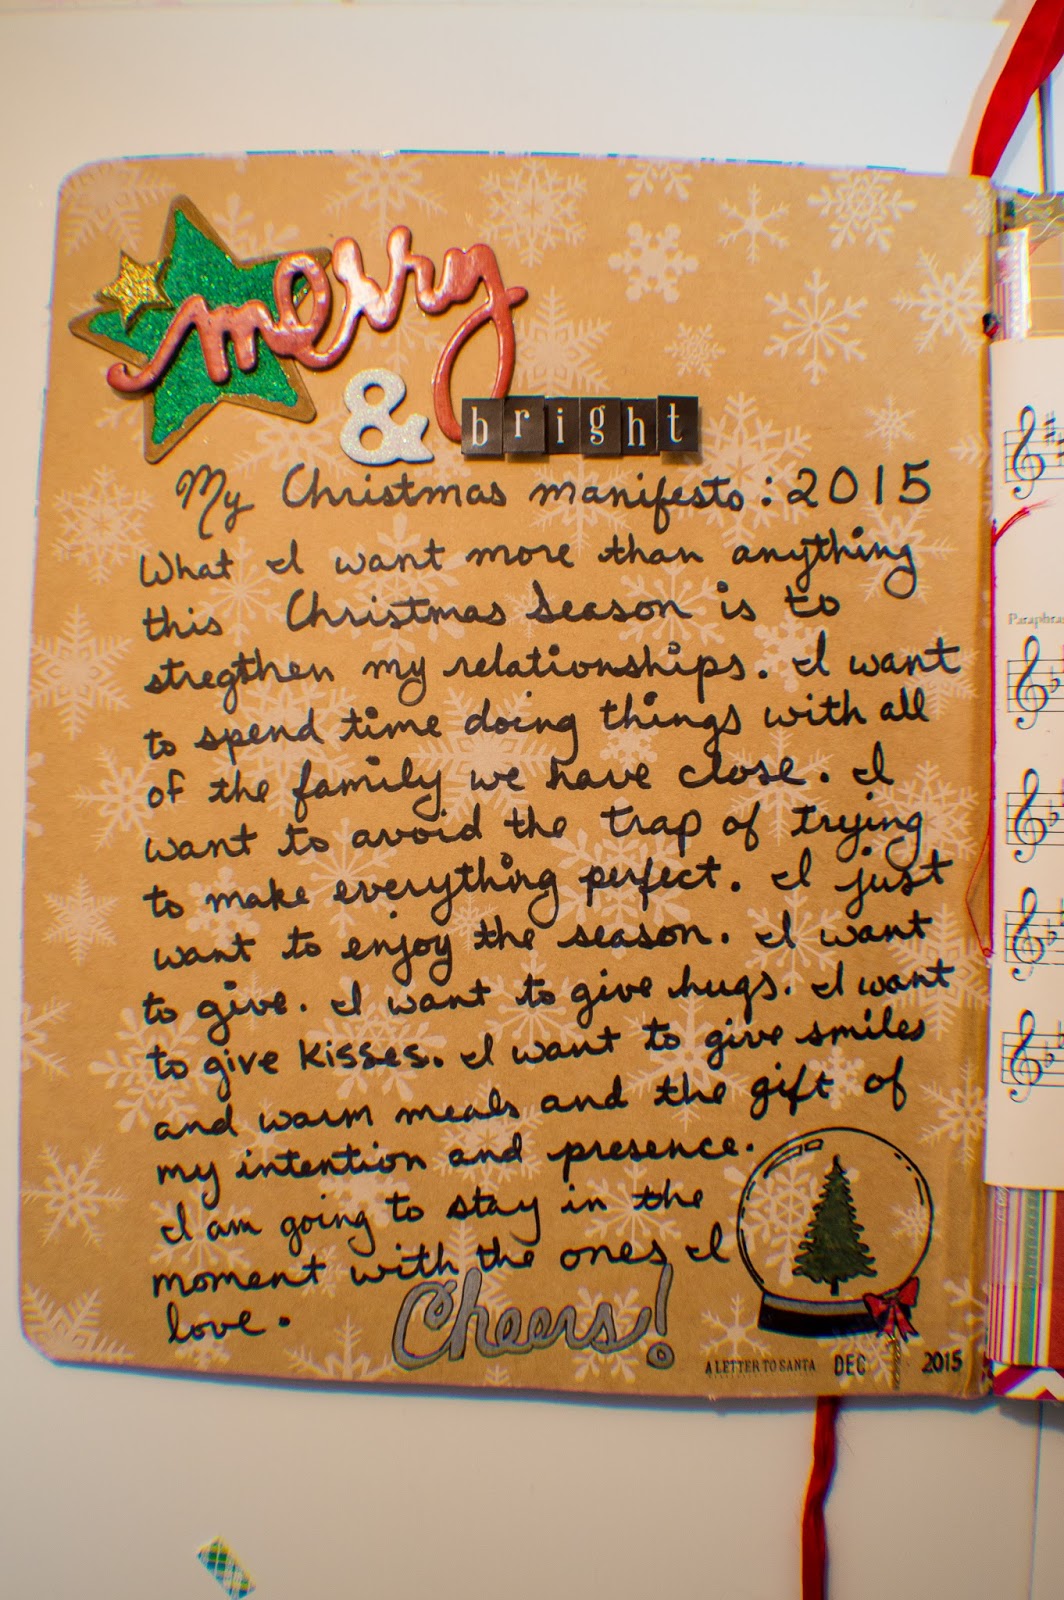 merry
& bright
My Christmas manifesto: 2015
What I want more than anything
this Christmas season is to
stregthen my relationships. I want
to spend time doing things with all
of the family we have close. I
want to avoid the trap of trying
to make everything perfect. I just
want to enjoy the season. I want
to give. I want to give hugs. I want
to give kisses. I want to give smiles
and warm meals and the gift of
my intention and presence.
I am going to stay in the
moment with the ones I
love.
Cheers!
A LETTER TO SANTA DEC 2015